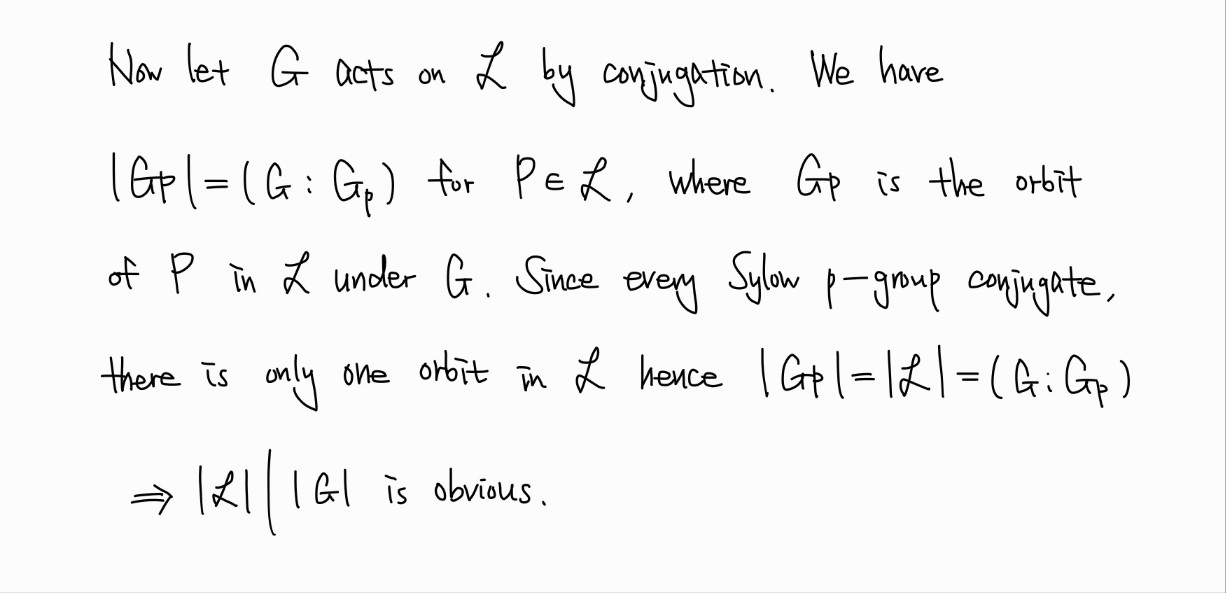 Now let G acts on ℒ by conjugation. We have
|Gp| = (G : G_p) for P ∈ ℒ, where Gp is the orbit
of P in ℒ under G. Since every Sylow p-group conjugate,
there is only one orbit in ℒ hence |Gp| = |ℒ| = (G : G_p)
⇒ |ℒ| | |G| is obvious.